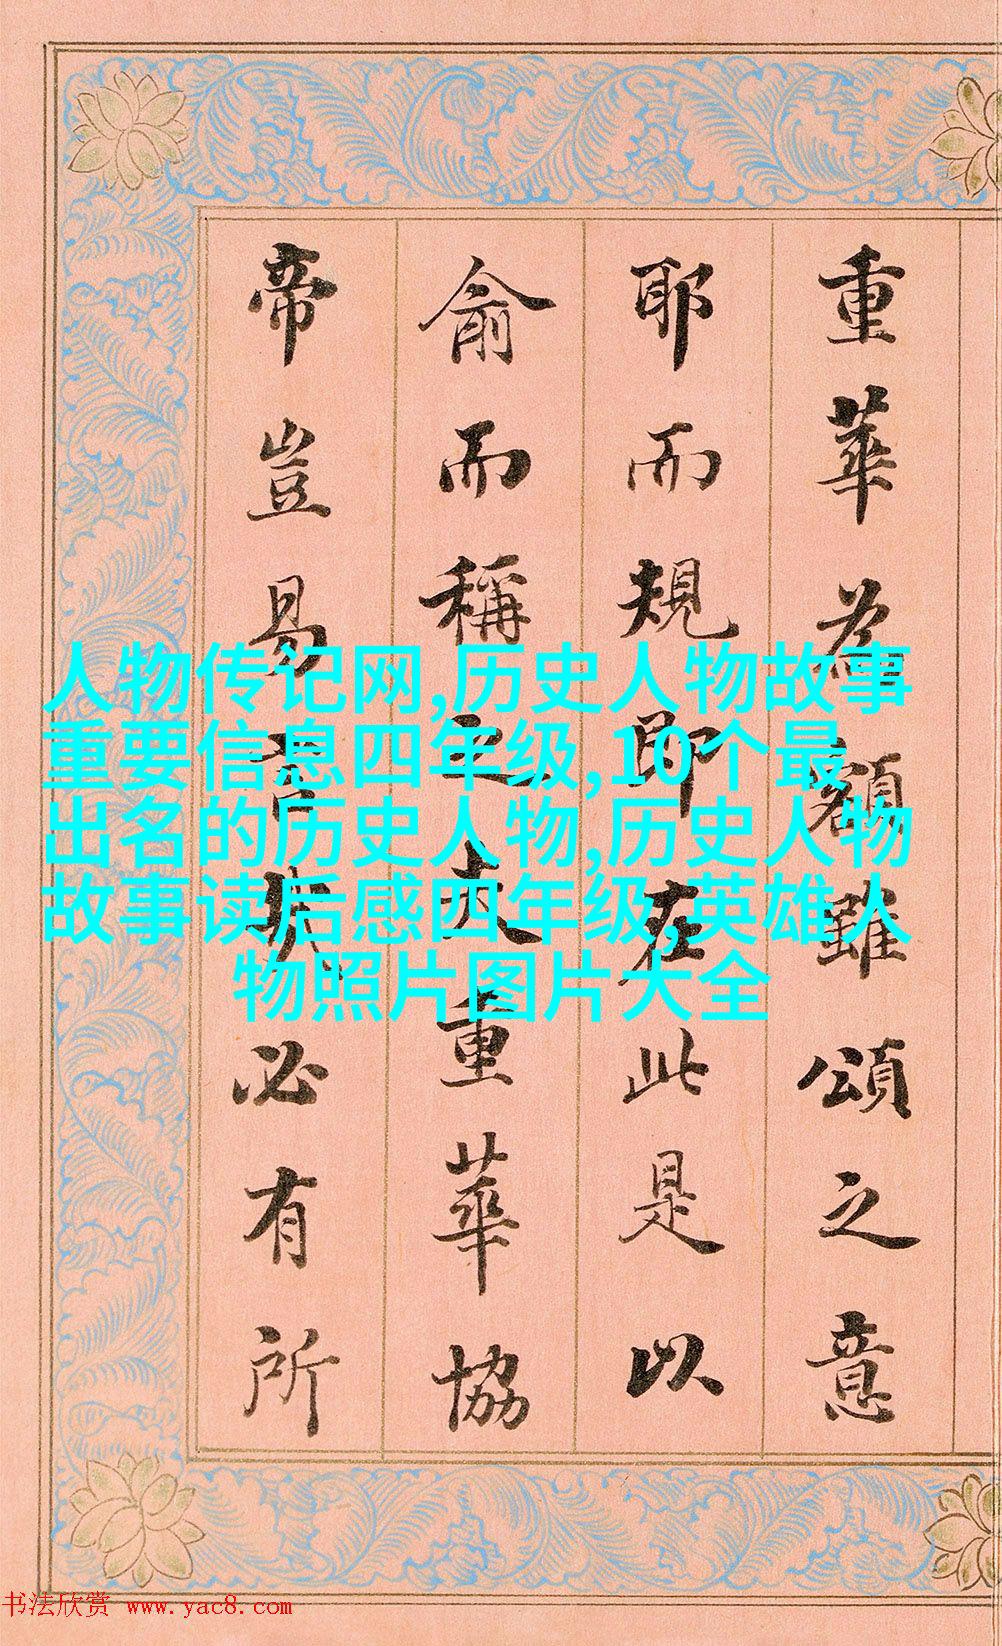 重華為額雖頌之意
耶而規即在此是以
俞而稱之夫重華協
帝豈易言哉必有所
人物传记网,历史人物故事
重要信息四年级,10个最
出名的历史人物,历史人物
故事读后感四年级,英雄人
物照片图片大全
书法欣赏 www.yac8.com